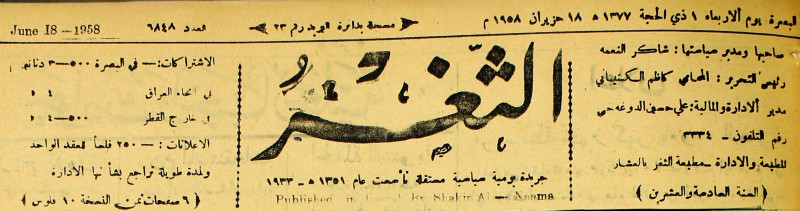 البصرة يوم الاربعاء ١ ذي الحجة ١٣٧٧ ه ١٨ حزيران ١٩٥٨ م
مسجلة بدائرة البريد رقم ٢٣
العدد ٦٨٤٨
June 18 -1958
صاحبها ومدير سياستها : شاكر النعمه
رئيس التحرير : المحامي كاظم
مدير الادارة والمالية : علي حسين
رقم التلفون- ٣٣٣٤
للطبعة والادارة -مطبعة الثغر بالعشار
( السنة السادسة والعشرين )
الثغر
جريدة يومية سياسية مستقلة تأسست عام ١٣٥١ ه - ١٩٣٣
Published in By Shakir Al - Neama
الاشتراكات :- في البصرة ٥٠٠-٣ دنانير
في انحاء العراق ٤ »
في خارج القطر ٥٠٠-٤ »
الاعلانات :- ٢٥٠ فلساً للعقد الواحد
ولمدة طويلة تراجع بشأنها الادارة
( ٦ صفحات ثمن النسخة ١٠ فلوس )